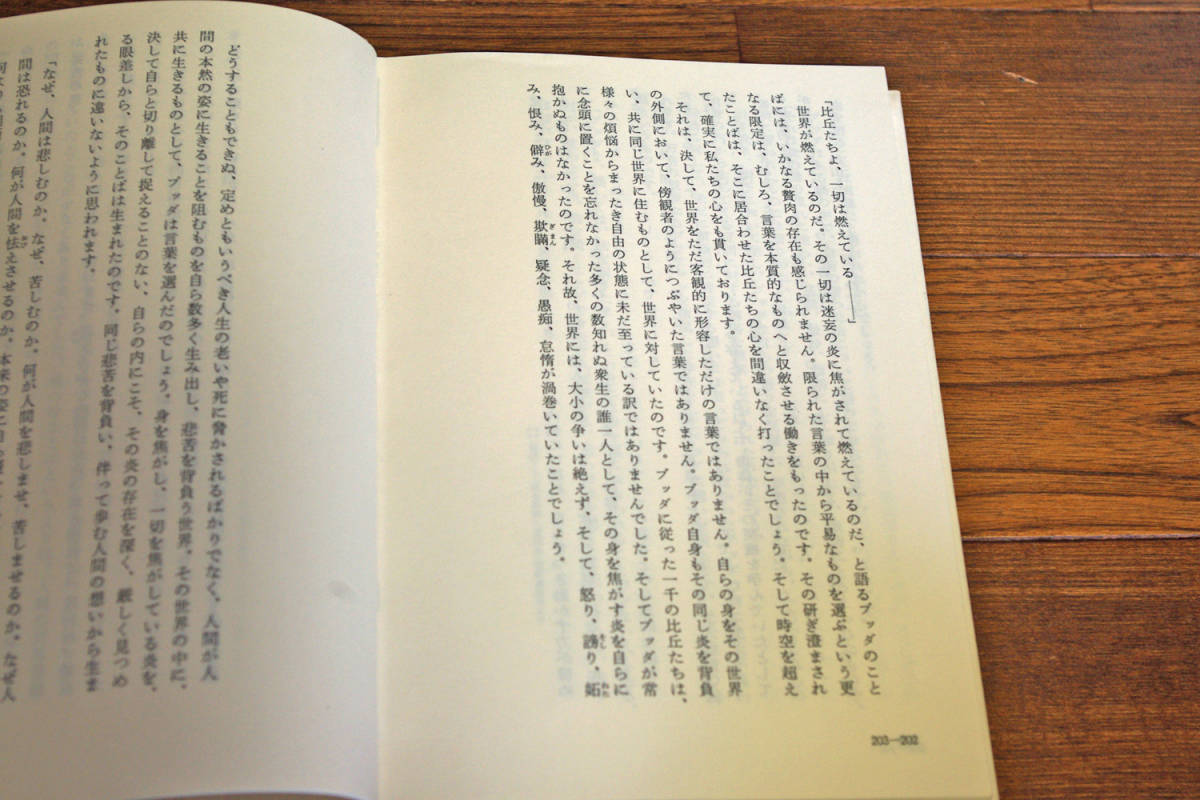 「比丘たちよ、一切は燃えている――」
世界が燃えているのだ。その一切は迷妄の炎に焦がされて燃えているのだ、と語るブッダのこと
ばには、いかなる贅肉の存在も感じられません。限られた言葉の中から平易なものを選ぶという更
なる限定は、むしろ、言葉を本質的なものへと収斂させる働きをもったのです。その研ぎ澄まされ
たことばは、そこに居合わせた比丘たちの心を間違いなく打ったことでしょう。そして時空を超え
て、確実に私たちの心をも貫いております。
それは、決して、世界をただ客観的に形容しただけの言葉ではありません。自らの身をその世界
の外側において、傍観者のようにつぶやいた言葉ではありません。ブッダ自身もその同じ炎を背負
い、共に同じ世界に住むものとして、世界に対していたのです。ブッダに従った一千の比丘たちは、
様々の煩悩からまったき自由の状態に未だ至っている訳ではありませんでした。そしてブッダが常
に念頭に置くことを忘れなかった多くの数知れぬ衆生の誰一人として、その身を焦がす炎を自らに
抱かぬものはなかったのです。それ故、世界には、大小の争いは絶えず、そして、怒り、謗り、妬
み、恨み、僻み、傲慢、欺瞞、疑念、愚痴、怠惰が渦巻いていたことでしょう。
203―202
どうすることもできぬ、定めともいうべき人生の老いや死に脅かされるばかりでなく、人間が人
間の本然の姿に生きることを阻むものを自ら数多く生み出し、悲苦を背負う世界。その世界の中に、
共に生きるものとして、ブッダは言葉を選んだのでしょう。身を焦がし、一切を焦がしている炎を、
決して自らと切り離して捉えることのない、自らの内にこそ、その炎の存在を深く、厳しく見つめ
る眼差しから、そのことばは生まれたのです。同じ悲苦を背負い、伴って歩む人間の想いから生ま
れたものに違いないように思われます。
「なぜ、人間は悲しむのか。なぜ、苦しむのか。何が人間を悲しませ、苦しませるのか。なぜ人
間は恐れるのか。何が人間を怯えさせるのか。本来の姿に